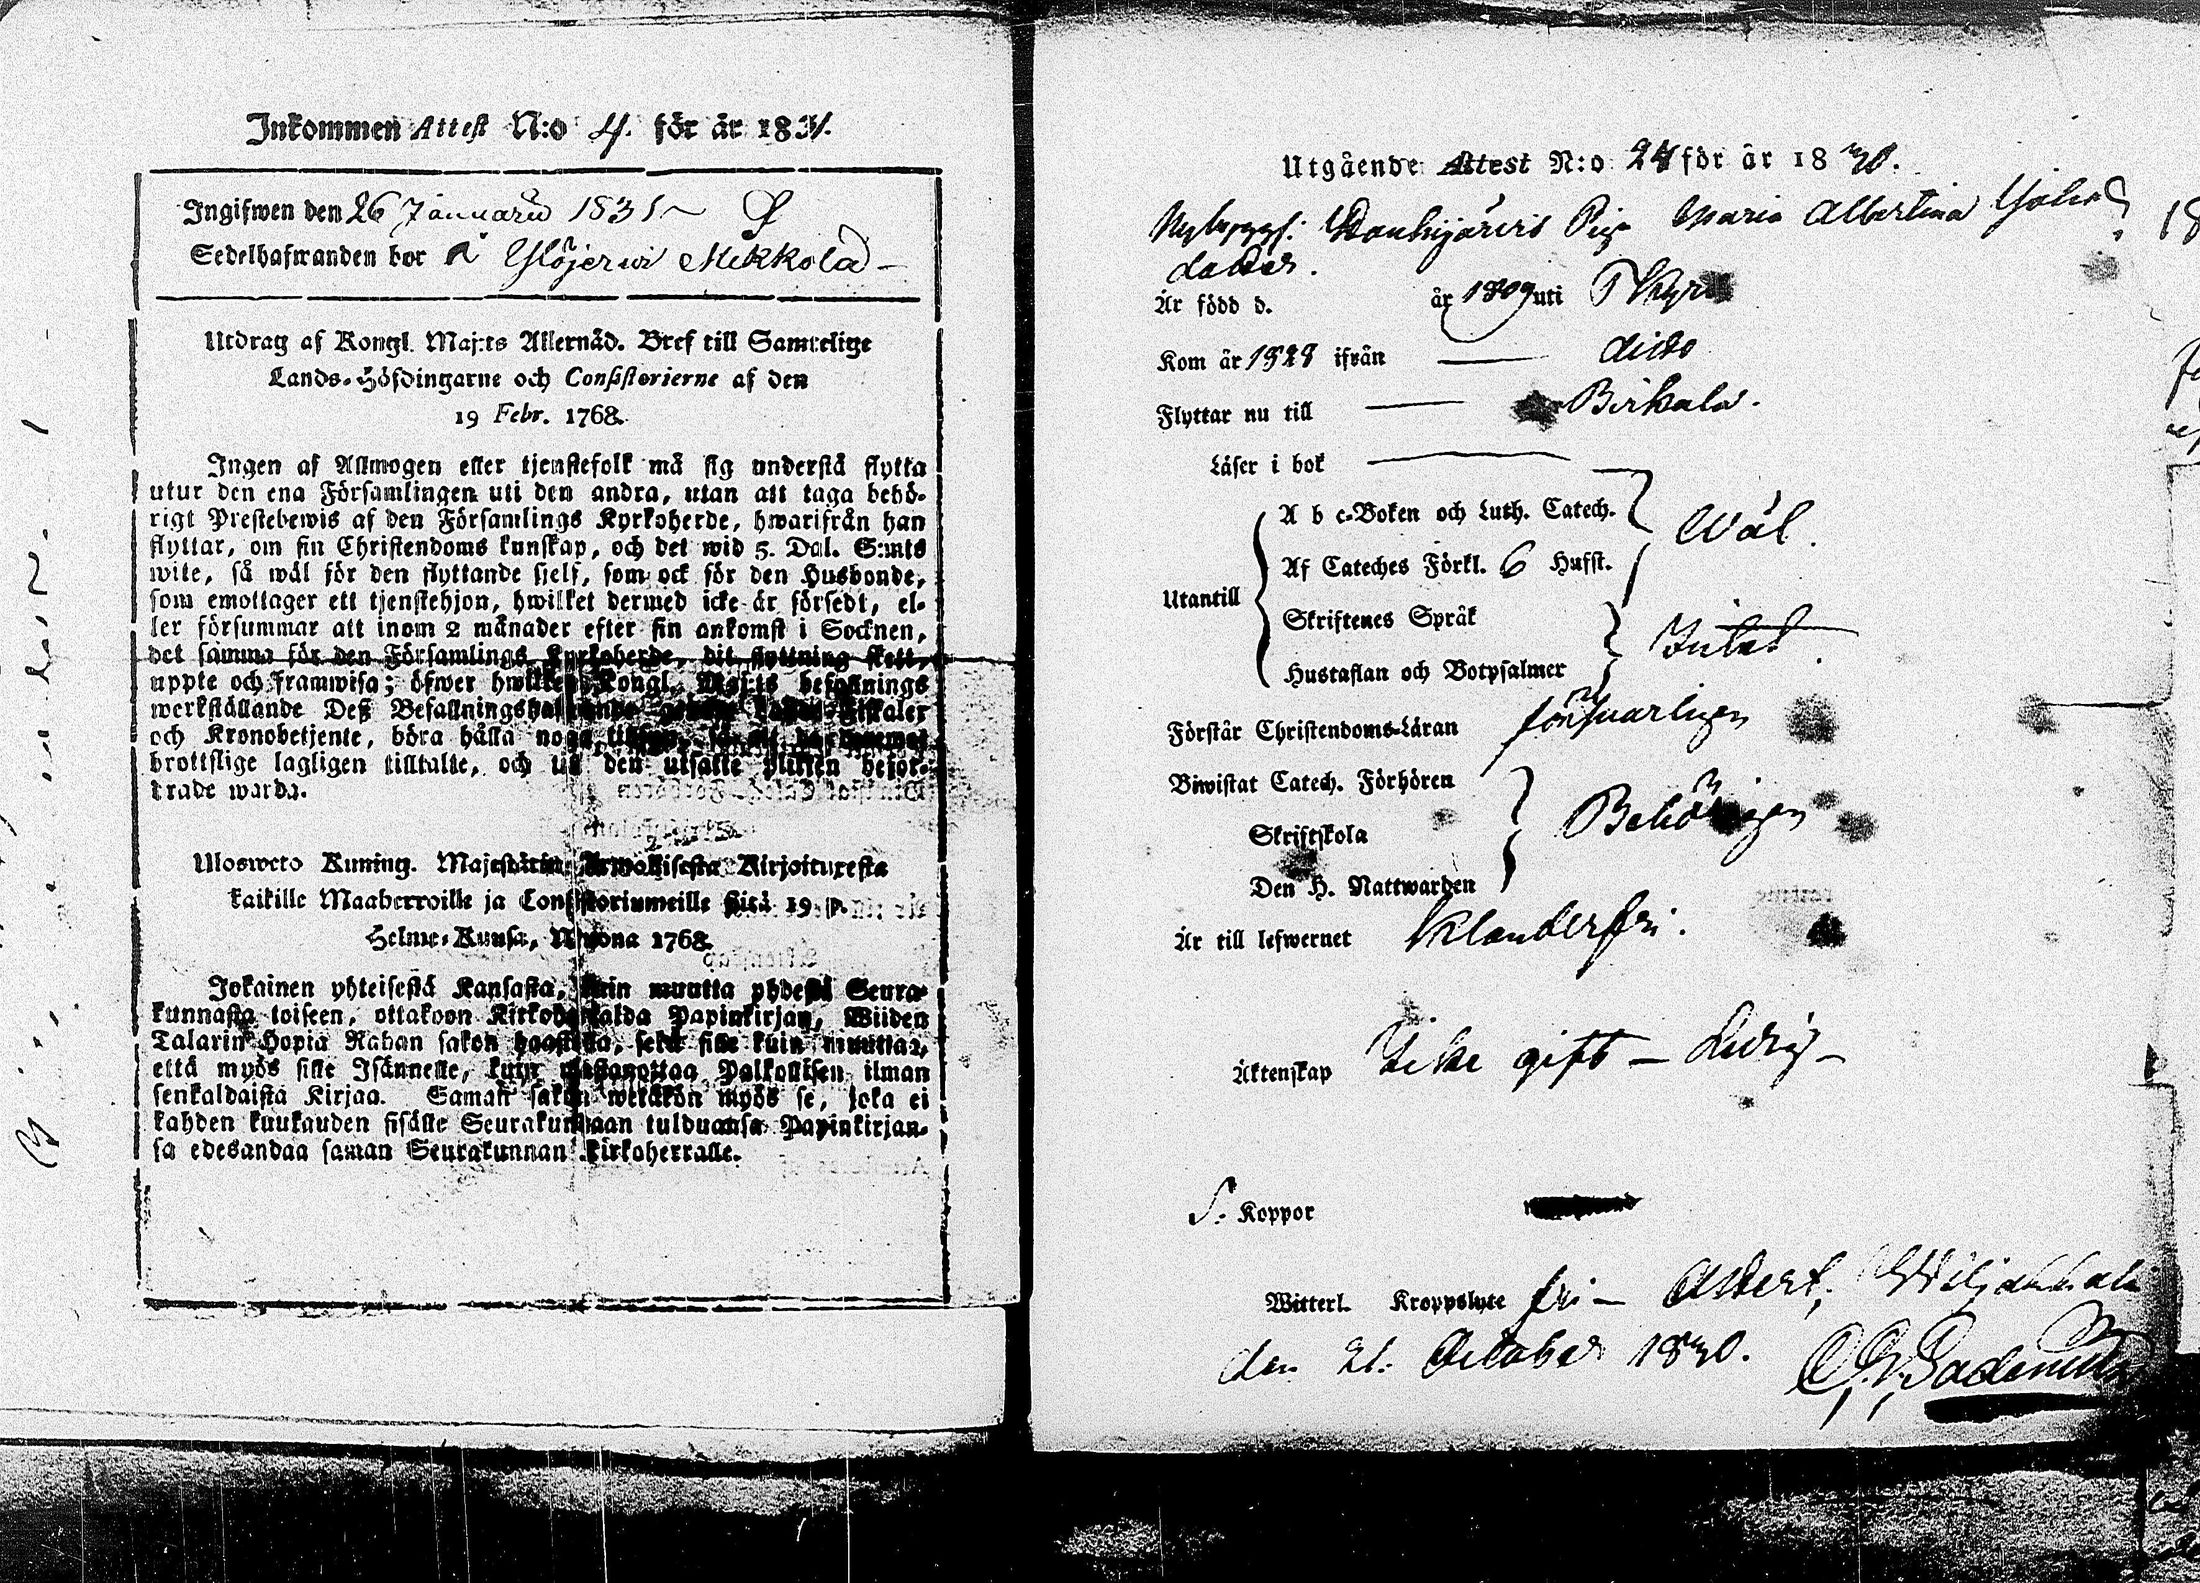 Inkommen Attest N:o 4. för år 1831.
Ingifwen den 26 Januarii 1831
Sedelhafwanden bor å Ylöjerwi Mikkola
Utdrag af Kongl. Maj:ts Allernåd. Bref till Samtelige
Lands-Höfdingarne och Consistorierne af den
19 Febr. 1768.
Ingen af Allmogen eller tjenstefolk må sig understå flytta
utur den ena Församlingen uti den andra, utan att taga behö-
rigt Prestebewis af den Församlings Kyrkoherde, hwarifrån han
flyttar, om sin Christendoms kunskap, och det wid 5. Dal. S:mts
wite, så wäl för den flyttande sjelf, som ock för den Husbonde,
som emottager ett tjenstehjon, hwilket dermed icke är försedt, el-
ler försummar att inom 2 månader efter sin ankomst i Socknen,
det samma för den Församlings Kyrkoherde, dit flyttning skett,
uppte och framwisa; öfwer hwilken Kongl. Maj:ts befallnings
werkställande Deß Befallningshafwande
och Kronobetjente, böra hålla noga
brottslige lagligen tilltalte, och till den utsatte plikten beford-
drade warda.
Ulosweto Kuning. Majestätin Armollisesta Kirjoituxesta
kaikille Maaherroille ja Consistoriumeille siitä 19 p.
Helme-Kuusa, Wuonna 1768.
Jokainen yhteisestä Kansasta, kuin muutta yhdestä Seura-
kunnasta toiseen, ottakoon Kirkoherralda Papinkirjan, Wiiden
Talarin Hopia Rahan sakon haastolla, sekä sille kuin muuttaa,
että myös sille Isännelle, kuin wastanottaa Palkollisen ilman
senkaldaista Kirjaa. Saman sakon wetäkön myös se, joka ei
kahden kuukauden sisälle Seurakundaan tulduansa Papinkirjan-
sa edesandaa saman Seurakunnan kirkoherralle.
Utgående Attest N:o 24 för år 1830.
Pig. Maria Albertina
dotter.
Är född d. år 1809 uti T Kyro
Kom år 1828 ifrån dito
Flyttar nu till Birkala.
Läser i bok
A b c-Boken och Luth. Catech. Wäl.
Utantill Af Cateches Förkl. 6 Hufst.
Skriftenes Språk
Intet.
Hustaflan och Botpsalmer
Förstår Christendoms-Läran försvarligen
Biwistat Catech. Förhören
Skriftskola Behörigen
Den H. Nattwarden
Är till lefwernet Klanderfri.
Äktenskap Icke gift – Ledig –
S. Koppor
Witterl. Kroppslyte fri –
den 21. October 1830.